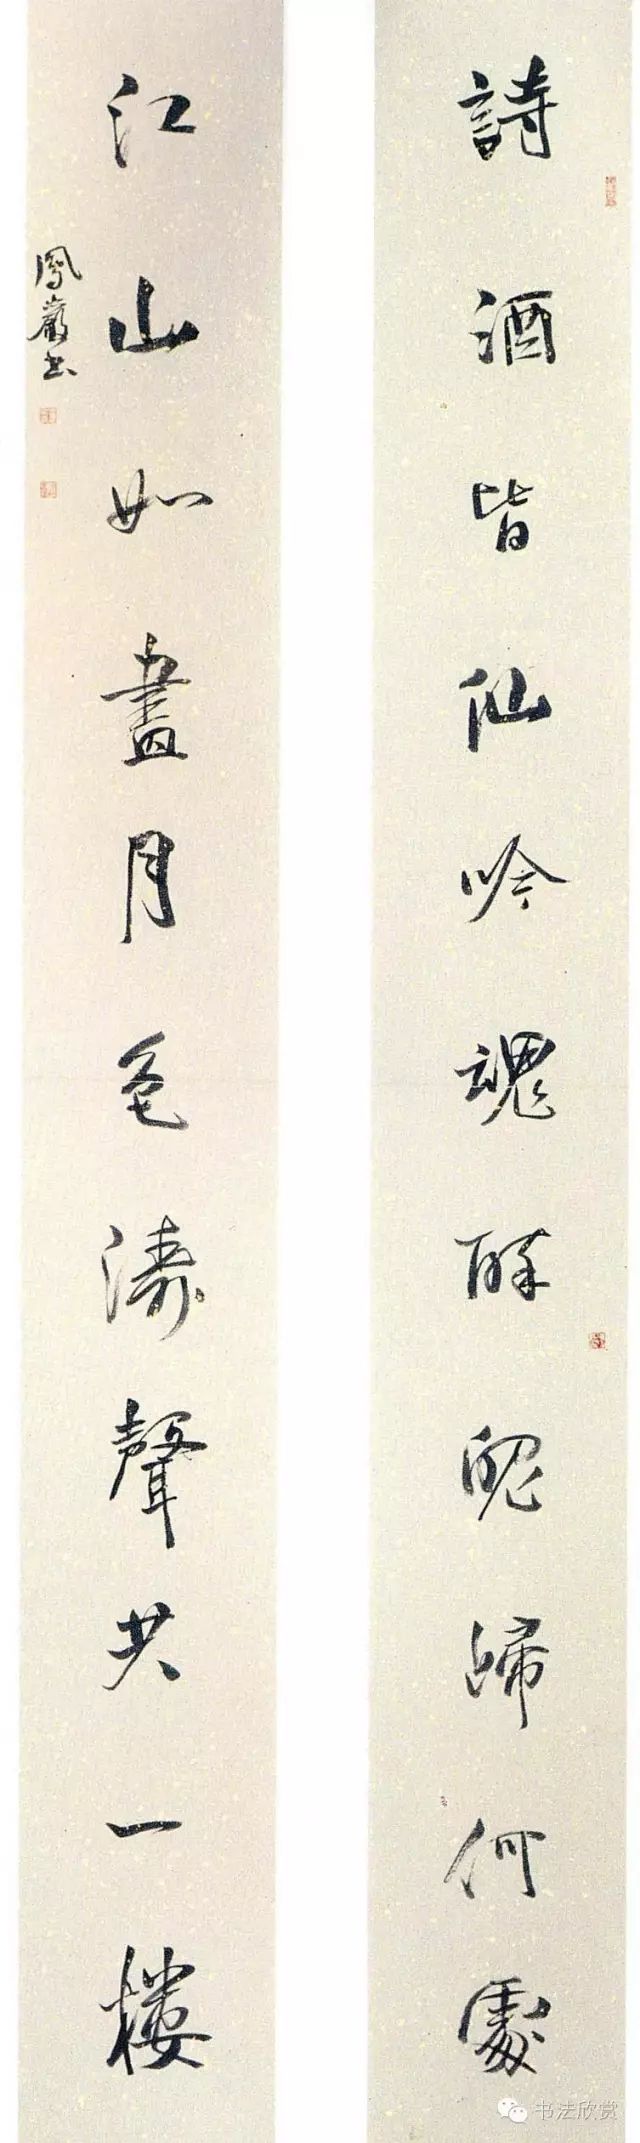 詩酒皆仙吟魂醉魄歸何處
江山如畫月色濤聲共一楼
鳳巖书
书法欣赏